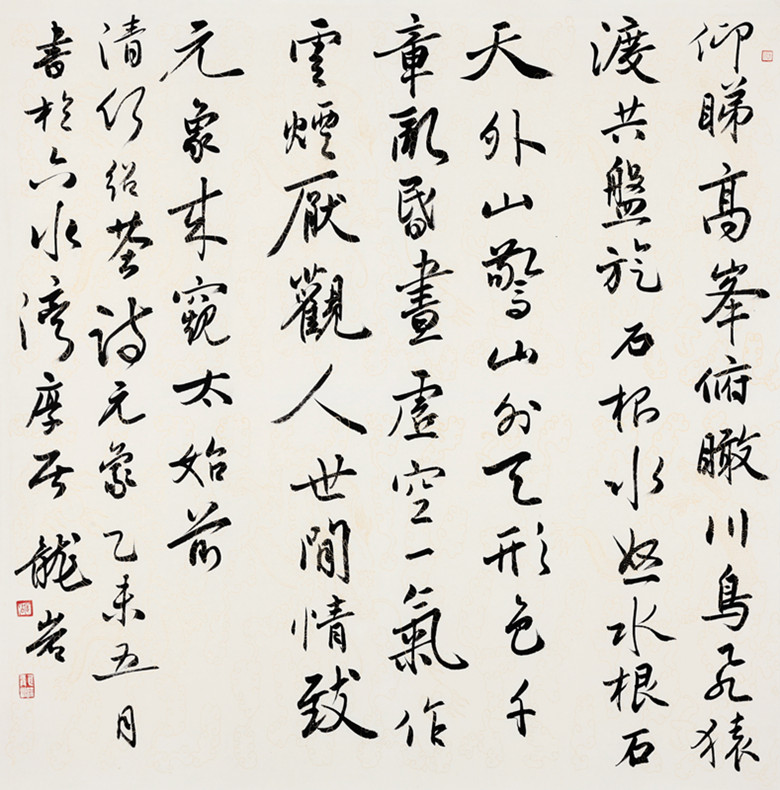 仰睇高峯俯瞰川鳥飛猿
渡共盤旋石根水怒水根石
天外山驚山外天形色千
章亂昏晝虛空一氣作
雲煙厭觀人世間情致
元象来窺太始前
清何紹基詩元象乙未五月
書於六水灣摩居龍岩